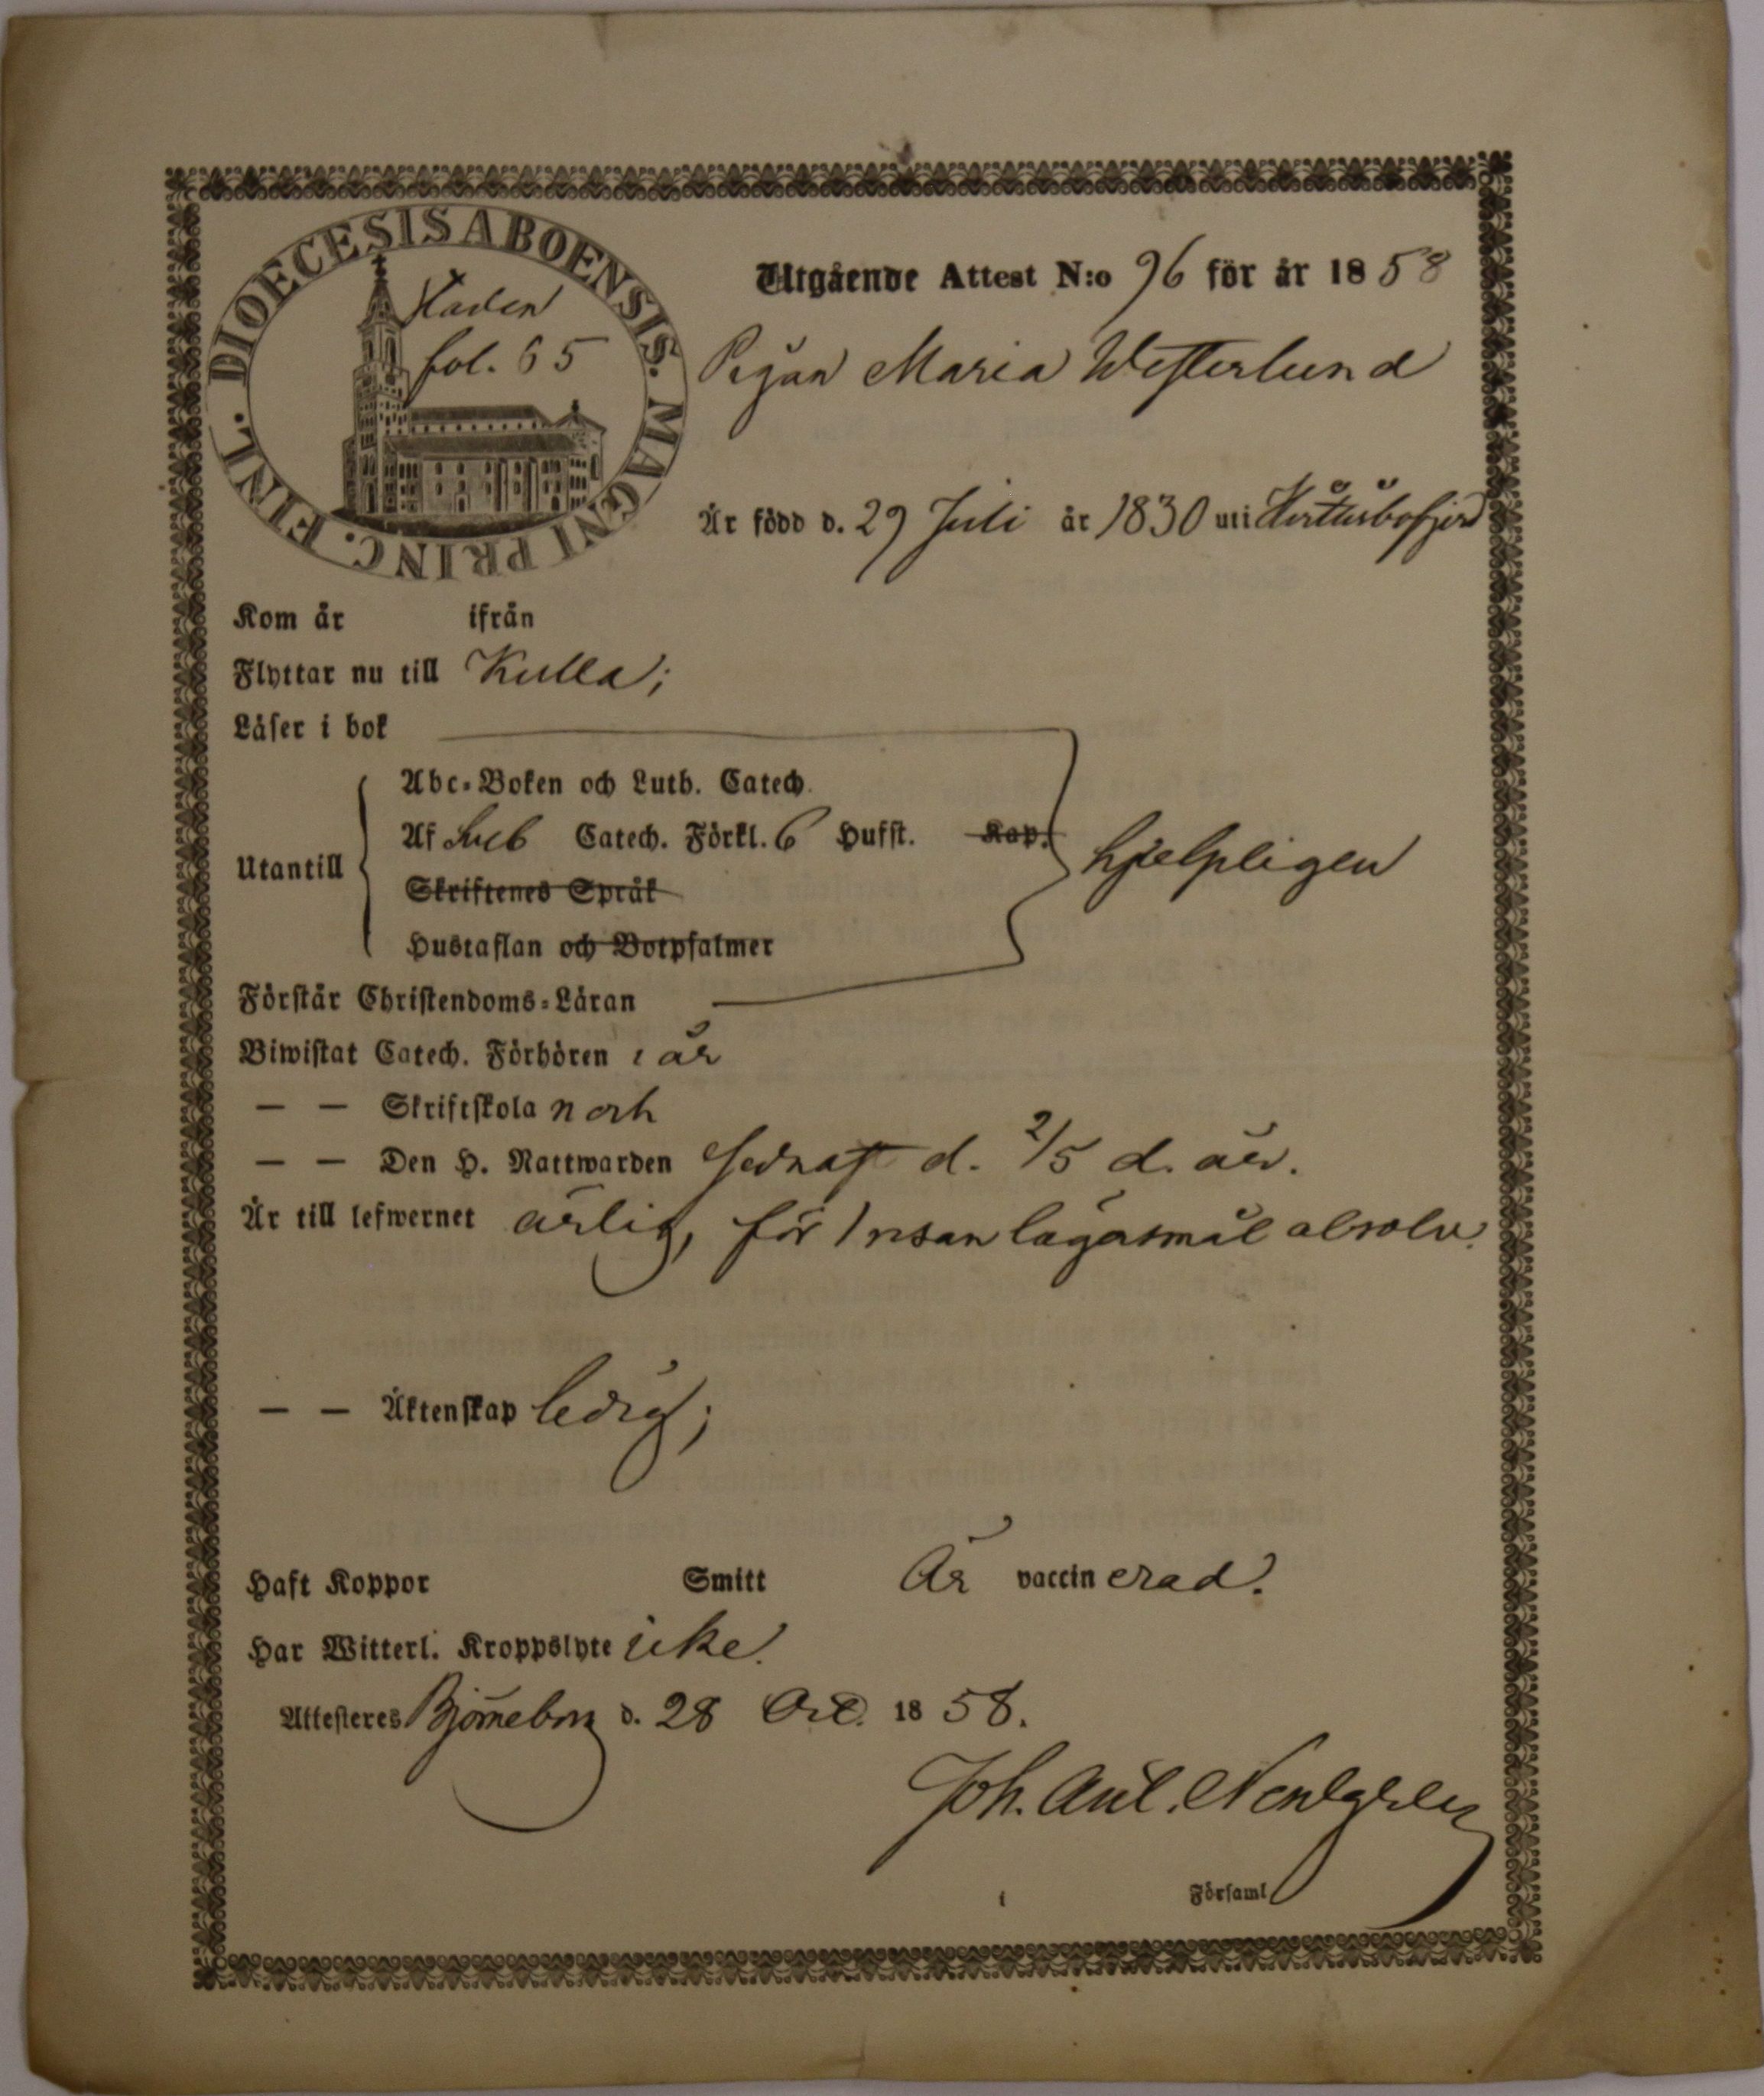 DIOECESIS ABOENSIS. MAGNI PRINC. FINL.
Staden
fol. 65
Utgående Attest N:o 96 för år 1858
Pigan Maria Westerlund
Är född d. 29 Juli år 1830 uti
Kom år ifrån
Flyttar nu till Kulla;
Läser i bok
Abc-Boken och Luth. Catech.
Utantill
Af Sveb Catech. Förkl. 6 Hufst. Kap.
hjelpligen
Skriftenes Språk
Hustaflan och Botpsalmer
Förstår Christendoms-Läran
Biwistat Catech. Förhören i år
— — Skriftskola och
— — Den H. Nattwarden sednast d. 2/5 d. år.
Är till lefwernet ärlig, för 1 resan lägersmål absolv.
— — Äktenskap ledig;
Haft Koppor Smitt Är vaccinerad.
Har Witterl. Kroppslyte icke.
Attesteres Björneborg d. 28 Oct. 1858.
Joh.
i Församl